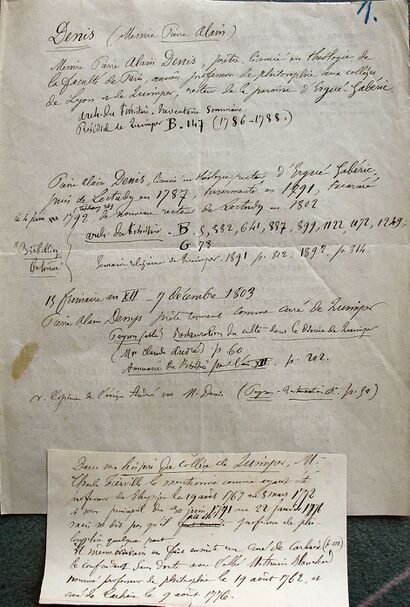 1.
Denis (Memie Pierre Alain)
Memie Pierre Alain Denis, prêtre licencié en théologie de
la Faculté de Paris, ancien professeur de philosophie aux collèges
de Lyon et de Quimper, recteur de la paroisse d'Ergué Gabéric,
arch. du Finistère. Inventaire Sommaire
Présidial de Quimper B. 147 (1786-1788.)
Pierre Alain Denis, licencié en théologie recteur d'Ergué Gabéric,
puis de Loctudy en 1787, insermenté en 1791,
le 4 juin 1792, de nouveau recteur de Loctudy en 1802
arch. du Finistère. B. 5, 332, 641, 887, 899, 1122, 1172, 1249.
G. 78
Semaine religieuse de Quimper 1891 p. 812. 1892. p. 314.
15 frimaire an XII - 7 décembre 1803
Pierre Alain Denys prête serment comme curé de Quimper
Peyron (abbé) Restauration du culte dans le diocèse de Quimper
(Mgr Claude André) p. 60
Annuaire du Finistère pour l'an XII p. 202.
v. l'opinion de l'évêque André sur M. Denis (Peyron - p. 50)
Dans son histoire du Collège de Quimper, M.
Charles Fierville le mentionne comme ayant été
professeur de du 19 août 1762 au 8 mars 1772
et sous principal du 30 juin 1771 au 22 janvier
mais ne dit pas qu'il professeur de phi-
losophie quelque part
Il en curé de
le confondant sans doute avec l'abbé Mathurin
nommé professeur de philosophie le 19 août 1762, et
curé de le 9 août 1776.